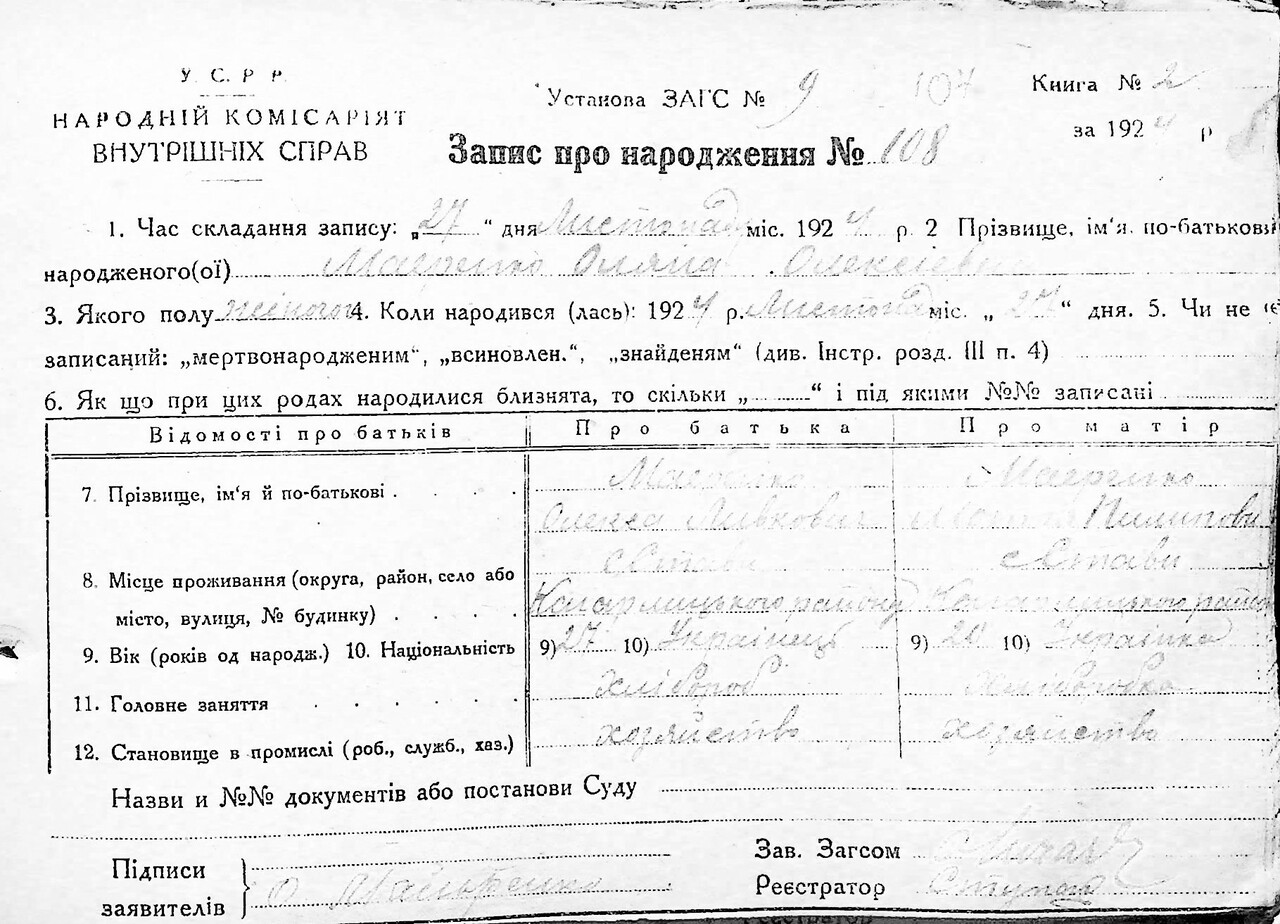 У. С. Р. Р.
НАРОДНІЙ КОМІСАРІЯТ
ВНУТРІШНІХ СПРАВ
Установа ЗАГС № 9 107
Книга № 2
за 1924 р
Запис про народження № 108
1. Час складання запису: „27" дня Листопад міс. 1924 р. 2 Прізвище, ім'я, по-батькові
народженого(ої) Олексієв
3. Якого полу жіночого 4. Коли народився (лась): 1924 р. Листопад міс. „27" дня. 5. Чи не є
записаний: „мертвонародженим", „всиновлен.", „знайденям" (див. Інстр. розд. III п. 4)
6. Як що при цих родах народилися близнята, то скільки „ " і під якими №№ записані
Відомості про батьків Про батька Про матір
7. Прізвище, ім'я й по-батькові
Олекса Пилипови
8. Місце проживання (округа, район, село або
місто, вулиця, № будинку)
с Стави с Стави
Кагарлицького району Кагарлицького район
9. Вік (років од народж.) 10. Національність 9) 27 10) Українець 9) 20 10) Українка
11. Головне заняття хлібороб хліборобка
12. Становище в промислі (роб., служб., хаз.) хозяйство хозяйство
Назви и №№ документів або постанови Суду
Підписи
заявителів О
Зав. Загсом
Реєстратор